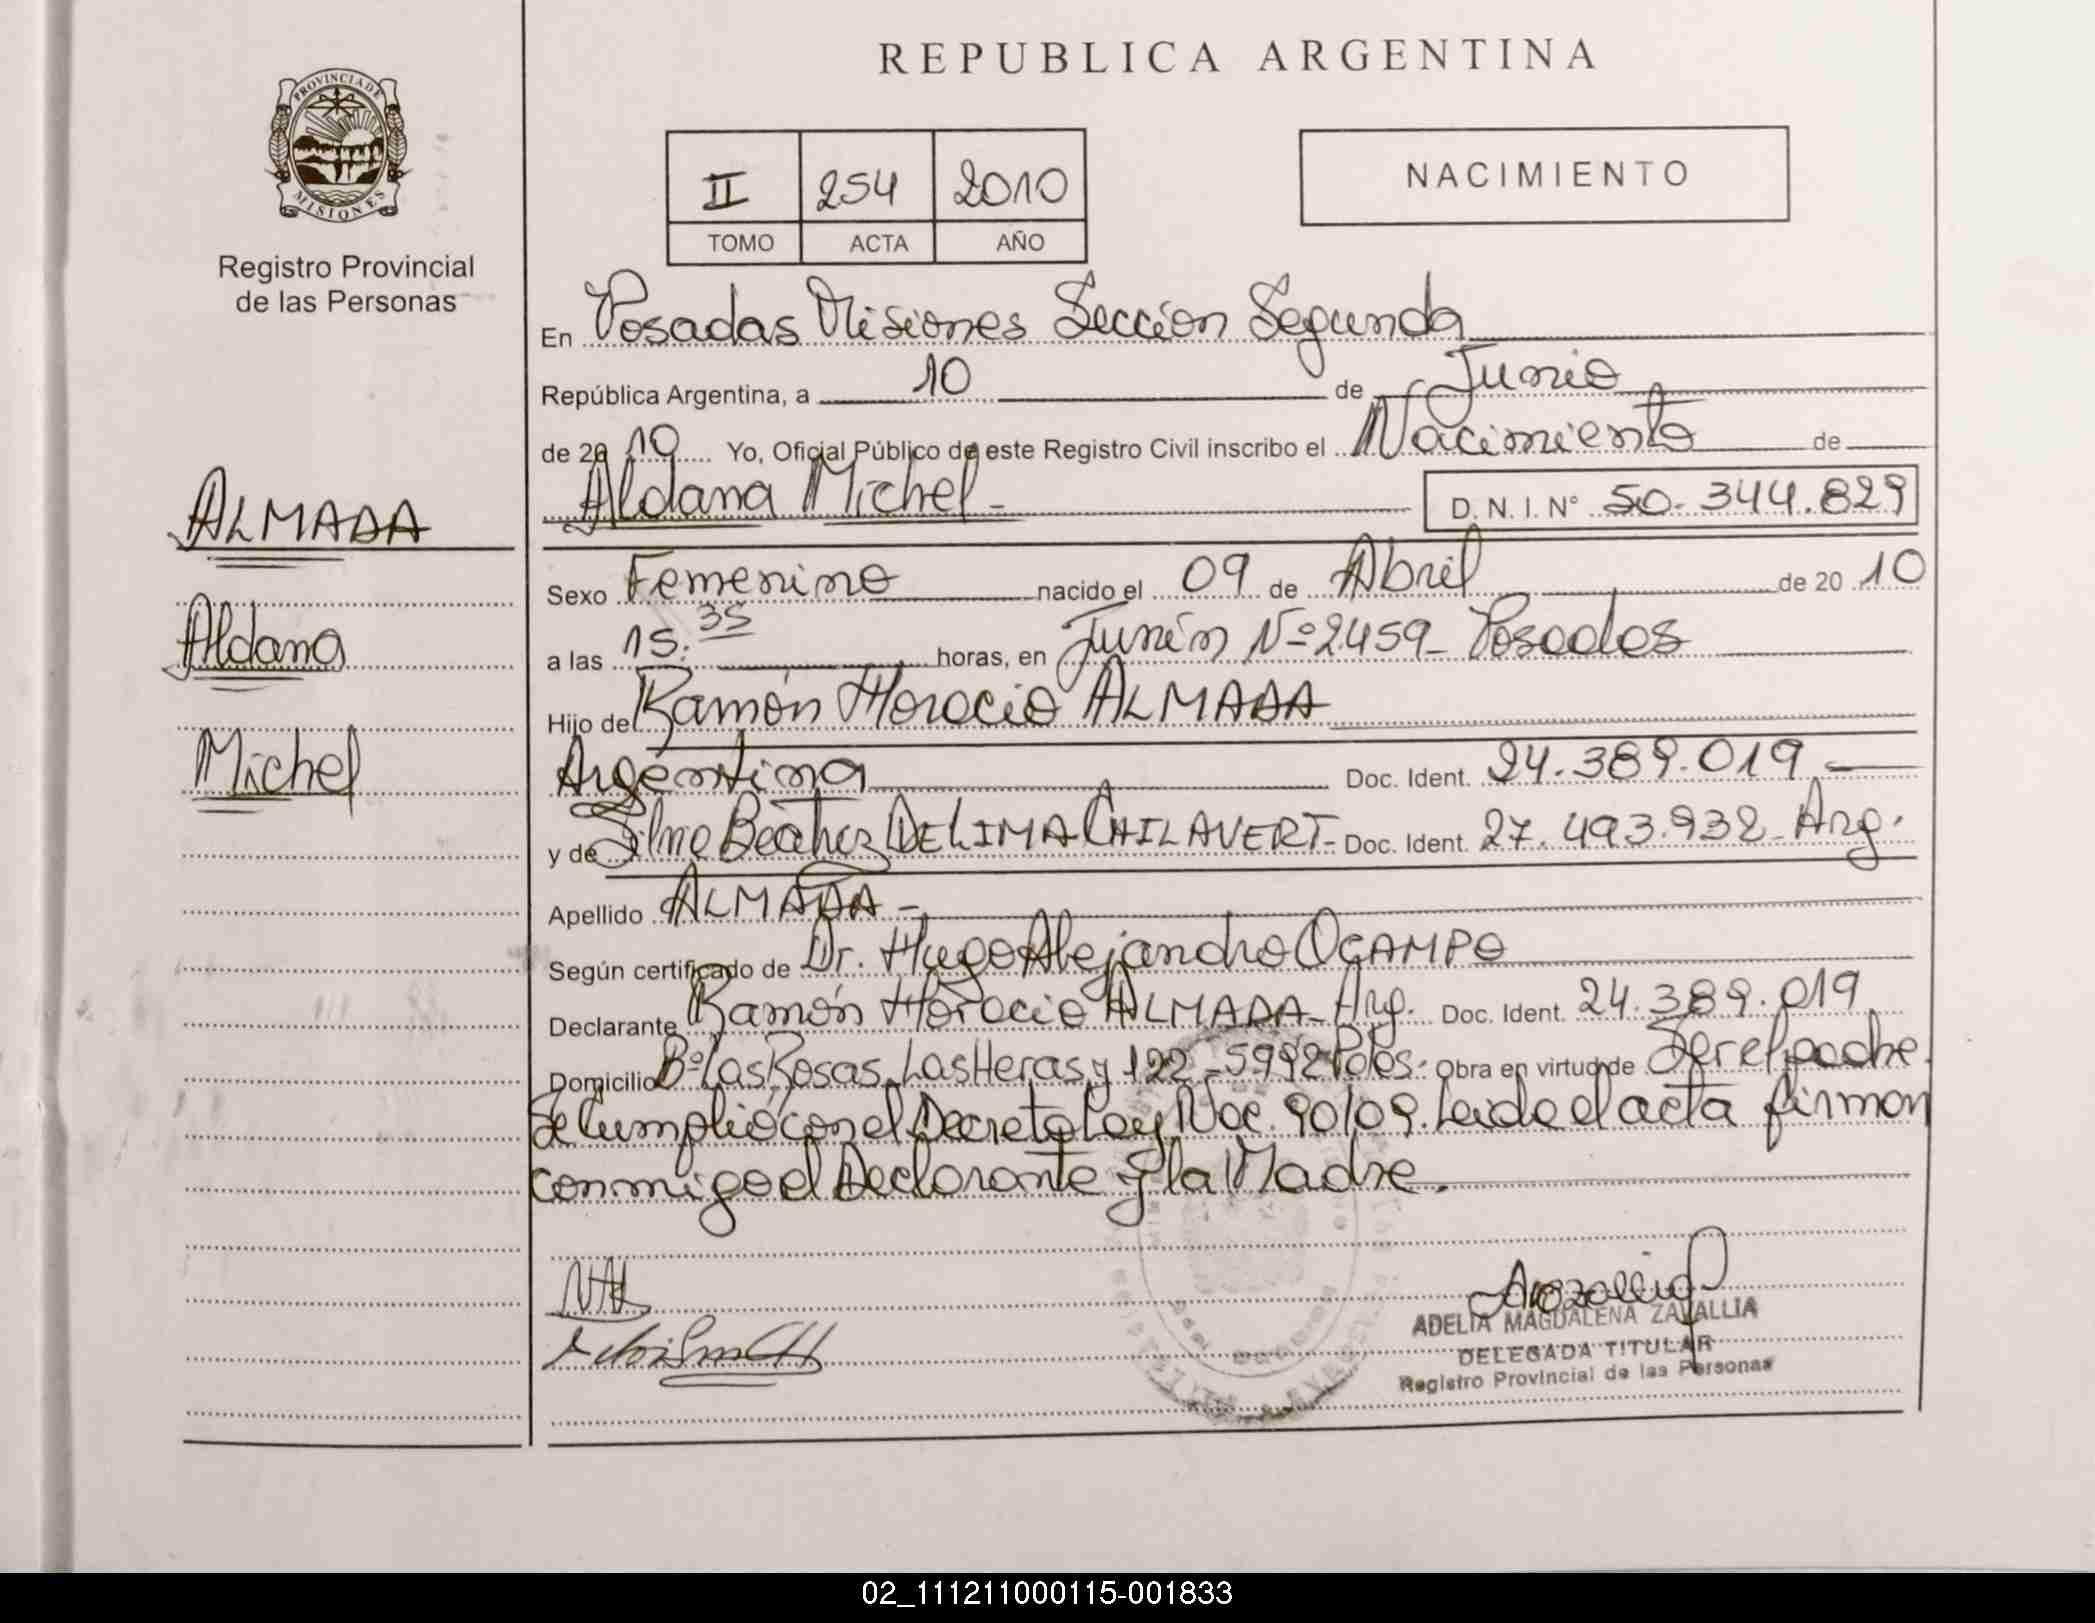 REPUBLICA ARGENTINA
PROVINCIA DE
MISIONES
Registro Provincial
de las Personas
II 254 2010
TOMO ACTA AÑO
NACIMIENTO
En Posadas Misiones Sección Segunda
República Argentina, a 10 de Junio
de 20 10 Yo, Oficial Público de este Registro Civil inscribo el Nacimiento de
Aldana Michel - D. N. I. N° 50.344.829
ALMADA
Aldana
Michel
Sexo Femenino nacido el 09 de Abril de 20 10
a las 15.35 horas, en Junín Nº 2459 - Posadas
Hijo de Ramón Horacio ALMADA
Argentina Doc. Ident. 24.389.019
y de Silma Beatriz DE LIMA CHILAVERT - Doc. Ident. 27.493.932 - Arg.
Apellido ALMADA -
Según certificado de Dr. Hugo Alejandro OCAMPO
Declarante Ramón Horacio ALMADA - Arg. Doc. Ident. 24.389.019
Domicilio Bº Las Rosas, Las Heras y 122 - 5992 Obra en virtud de Ser el padre.
Se Cumplió con el Decreto Ley Nac. 90/09. Leída el acta firman
conmigo el Declarante y la Madre.
ADELIA MAGDALENA ZAVALLIA
DELEGADA TITULAR
Registro Provincial de las Personas
02_111211000115-001833